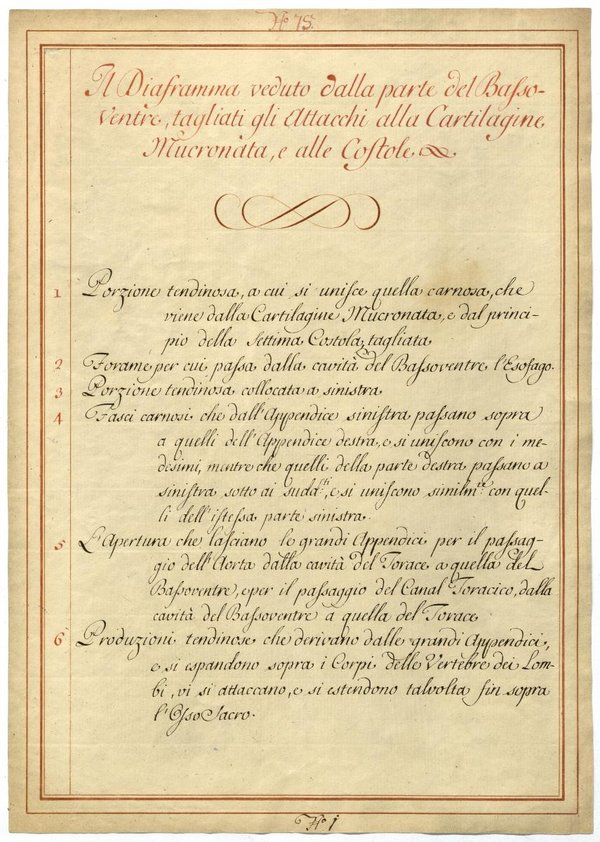 No. 75.
Il Diaframma veduto dalla parte del Basso-
ventre, tagliati gli Attacchi alla Cartilagine
Mucronata, e alle Costole
1 Porzione tendinosa, a cui si unisce quella carnosa, che
viene dalla Cartilagine Mucronata, e dal princi-
pio della Settima Costola tagliata
2 Forame per cui passa dalla cavità del Bassoventre l'Esofago.
3 Porzione tendinosa collocata a sinistra
4 Fasci carnosi che dall'Appendice sinistra passano sopra
a quelli dell'Appendice destra, e si uniscono con i me-
desimi, mentre che quelli della parte destra passano a
sinistra sotto ai sudd.ti, e si uniscono similm.te con quel-
li dell'istessa parte sinistra.
5 L'Apertura che lasciano le grandi Appendici per il passag-
gio dell'Aorta dalla cavità del Torace a quella del
Bassoventre, e per il passaggio del Canal Toracico, dalla
cavità del Bassoventre a quella del Torace
6 Produzioni tendinose che derivano dalle grandi Appendici,
e si espandono sopra i Corpi delle Vertebre dei Lom-
bi, vi si attaccano, e si estendono talvolta fin sopra
l'Osso Sacro.
No. 1